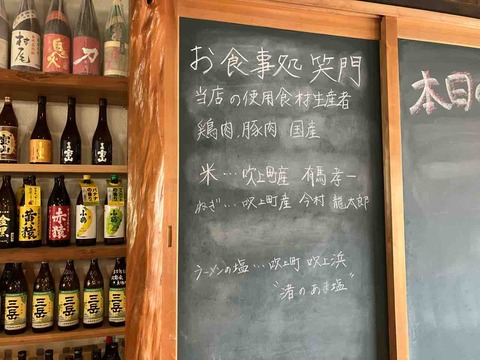 お食事処 笑門
当店の使用食材生産者
鶏肉、豚肉 国産
米…吹上町産 有馬孝一
ねぎ…吹上町産 今村龍太郎
ラーメンの塩…吹上町 吹上浜
"渚のあま塩"
本日の
村尾
黄猿
赤猿
小鶴
三岳
三岳
三岳
三岳